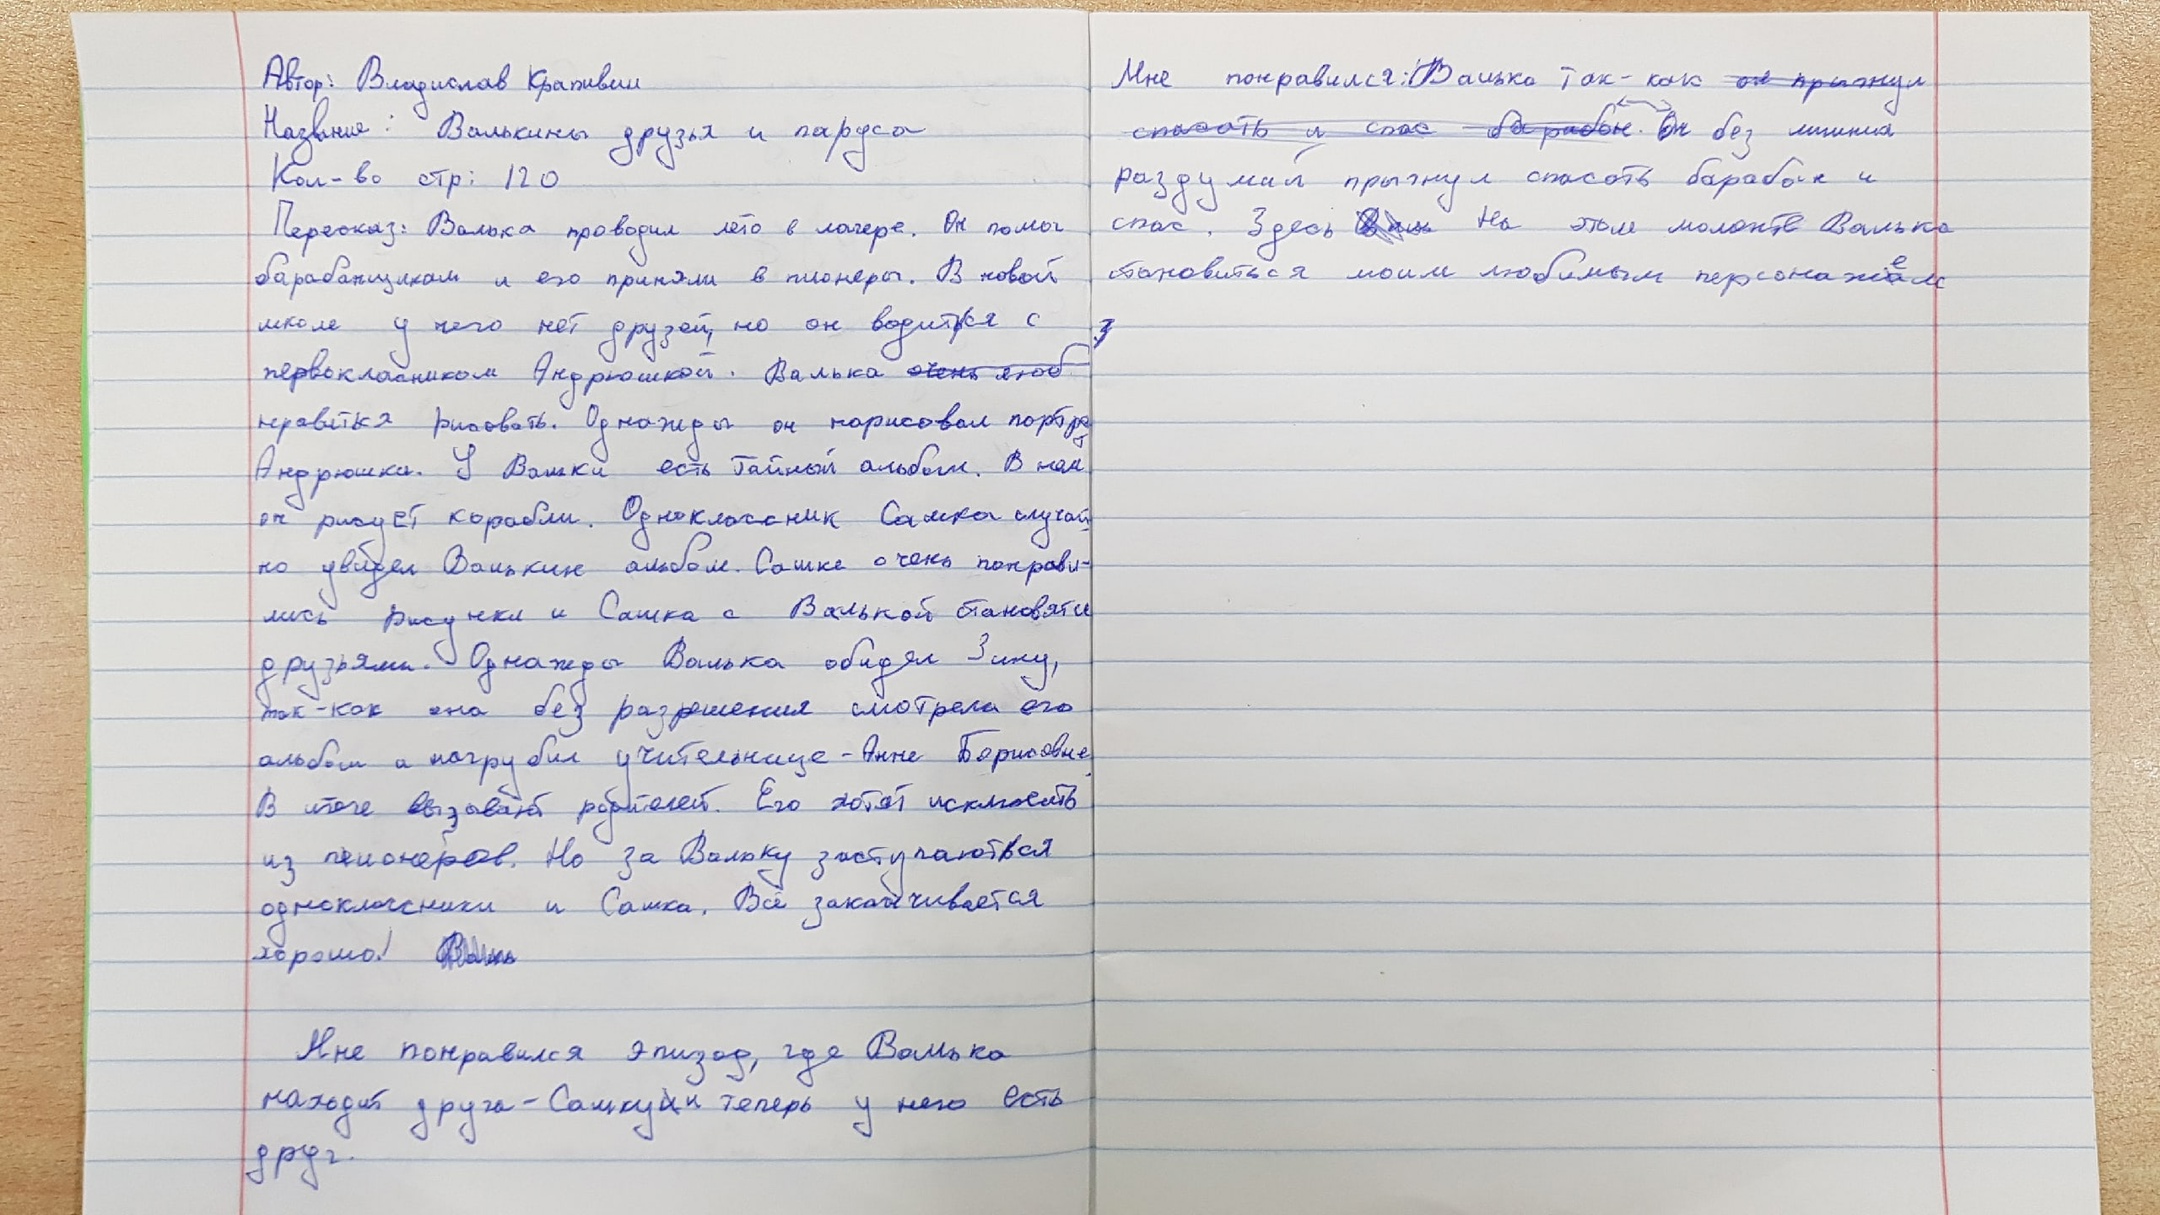 Автор: Владислав Крапивин
Название: Валькины друзья и паруса
Кол-во стр: 120
Пересказ: Валька проводил лето в лагере. Он помог
барабанщикам и его приняли в пионеры. В новой
школе у него нет друзей, но он водиться с
первокласником Андрюшкой. Валька очень люб
нравиться рисовать. Однажды он нарисовал портрет
Андрюшки. У Вальки есть тайный альбом. В нем
он рисует корабли. Одноклассник Сашка случай
но увидел Валькин альбом. Сашке очень понрави-
лись рисунки и Сашка с Валькой становятся
друзьями. Однажды Валька обидел Зину,
так-как она без разрешения смотрела его
альбом и нагрубил учительнице - Анне Борисовне.
В итоге вызывают родителей. Его хотят исключить
из пионеров. Но за Вальку заступаються
одноклассники и Сашка. Всё заканчивается
хорошо!
Мне понравился эпизод, где Валька
находит друга - Сашку и теперь у него есть
друг.
Мне понравился: Валька так-как он прыгнул
спасать и спас барабан. Он без лишних
раздумий прыгнул спасать барабан и
спас. Здесь На этом моменте Валька
становиться моим любимым персонажем